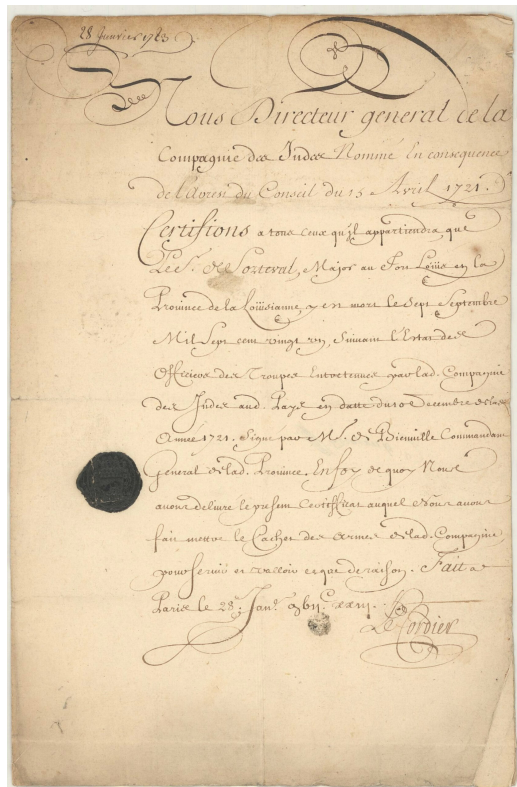 28 Janvier 1723
Nous Directeur general de la
Compagnie des Indes Nommé En consequence
de l'avrest du Conseil du 15 Avril 1721.
Certifions a tous ceux qu'il appartiendra que
Le S.r de Sorteval, Major au Fort Loüis en la
Province de la Loüisianne, y est mort le Sept Septembre
Mil Sept cent vingt un, Suivant l'Estat des
Officiers des Troupes Entretenues par lad. Compagnie
des Indes aud. Pays en datte du 10 Decembre de lad.
Année 1721. Signé par M.r de Bienville Commandant
General de lad. Province. En foy de quoy Nous
avons delivré le present Certifficat auquel Nous avons
fait mettre le Cachet des Armes de lad. Compagnie
pour servir et valloir ce que de raison. Fait a
Paris le 28.e Jan.r
Le Cordier